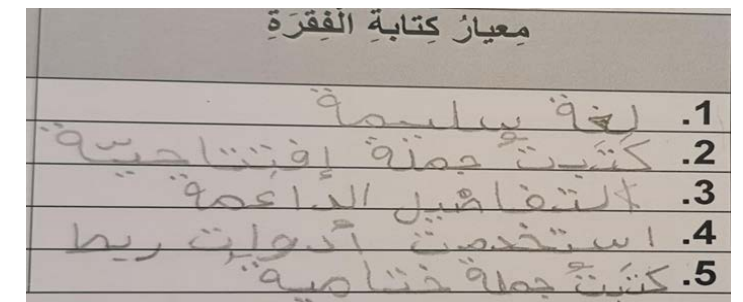 مِعيارُ كِتابةِ الْفِقرَةِ
1. لغة سليمة
2. كَتَبتُ جملة إفتِتاحيّة
3. التفاصيل الداعمة
4. استخدمت أدوات ربط
5. كتَبتُ جملة ختامية